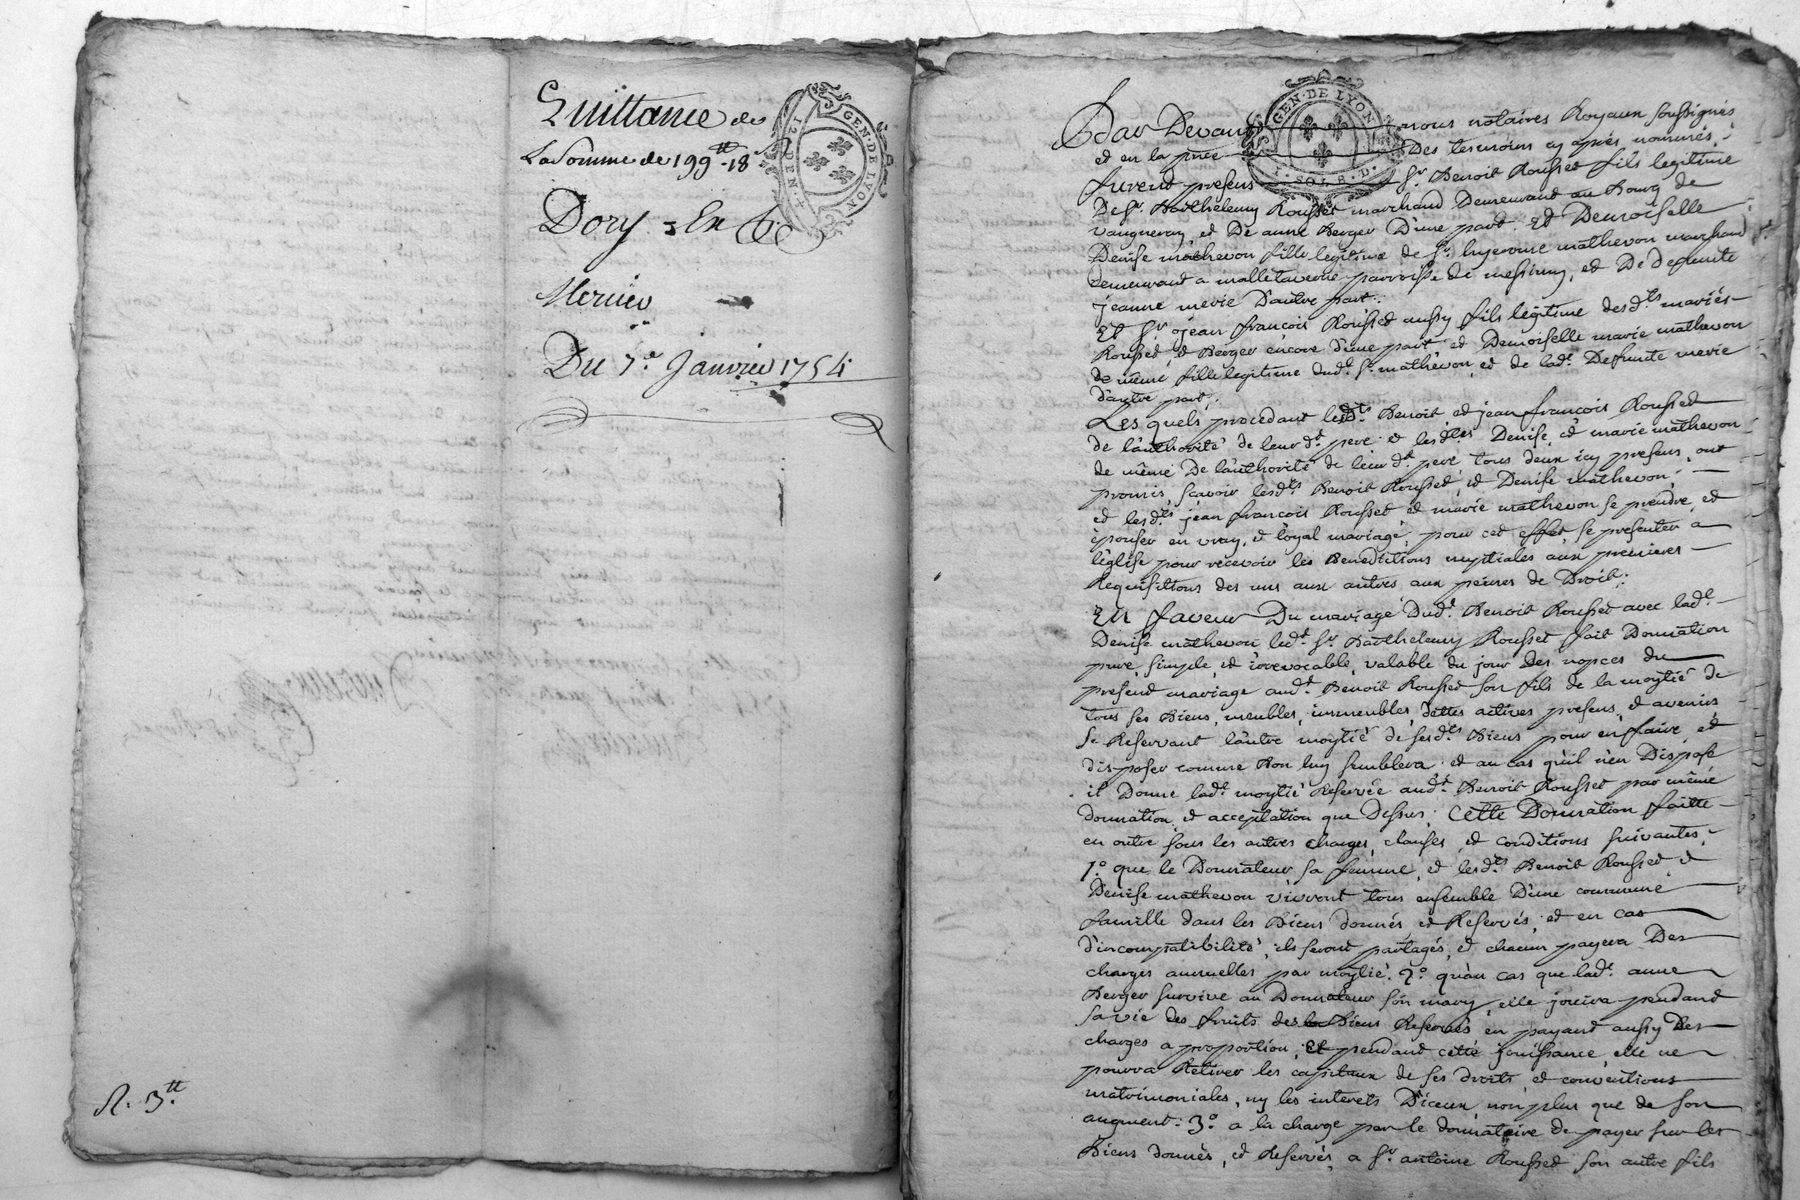 Quittance de
La Somme de 199tt-18
Dory
Mernier
Du 7e. Janvier 1754
R. 3tt.
GEN·DE LYON
GEN·DE LYON
1·SOL 8·D·
Par Devant nous notaires Royaux soussignés
et en la pnce Des tesmoins cy après nommés,
furent presens sr. Benoit Rousset fils legitime
De sr. Barthelemy Rousset marchand Demeurant au Bourg de
vaugneray, et De anne Berger D'une part. Et Demoiselle
Denise mathevon fille legitime de sr. hyerome mathevon marchand
Demeurant a malletaverne parroisse de messimy, et De Defunte
jeanne merie D'autre part:
Et sr. jean françois Rousset aussy fils légitime desdts. mariés
Rousset et Berger encore d'une part et Demoiselle marie mathevon
de même fille legitime dudt. sr. mathevon, et de ladt. Defunte merie
d'autre part,
Les quels procedant lesdts. Benoit et jean françois Rousset
de l'authorité de leurdt. pere et lesdtes Denise, et marie mathevon
de même De l'authorité de leurdt. pere, tous deux icy presens, ont
promis, sçavoir lesdts. Benoit Rousset, et Denise mathevon,
et lesdts. jean françois Rousset et marie mathevon se prendre, et
épouser en vray, et loyal mariage pour cet effet, se presenter a
l'église pour recevoir les Benedictions nuptiales aux premieres
Requisitions des uns aux autres aux peines de Droit:
En faveur Du mariage Dudt. Benoit Rousset avec ladt.
Denise mathevon ledt. sr. Barthelemy Rousset fait Donnation
pure, simple, et irrevocable, valable du jour des nopces du
present mariage audt. Benoit Rousset son fils de la moytié de
tous ses Biens, meubles, immeubles, dettes actives presens, et avenirs
se Reservant l'autre moytié de sesdts. Biens pour en faire, et
disposer comme Bon luy semblera et au cas qu'il n'en Dispose
il Donne ladt. moytié Reservée audt. Benoit Rousset par même
donnation, et acceptation que Dessus; Cette Donnation faitte
en outre sous les autres charges, clauses, et conditions suivantes,
1°. que le Donnateur sa femme, et lesdts. Benoit Rousset, et
Denise mathevon vivront tous ensemble D'une commune
famille dans les Biens donnés et Reservés; et en cas
d'incompatibilité, ils seront partagés, et chacun payera Des
charges annuelles par moytié. 2°. qu'au cas que ladt. anne
Berger survive au Donnateur son mary, elle jouira pendant
sa vie des fruits des Biens Reservés en payant aussy Des
charges a proportion, Et pendant cette jouissance elle ne
pourra Retirer les capitaux de ses droits, et conventions
matrimoniales, ny les interets D'iceux non plus que de son
augment. 3°. a la charge par le donnataire de payer sur les
Biens donnés, et Reservés, a sr. antoine Rousset son autre fils